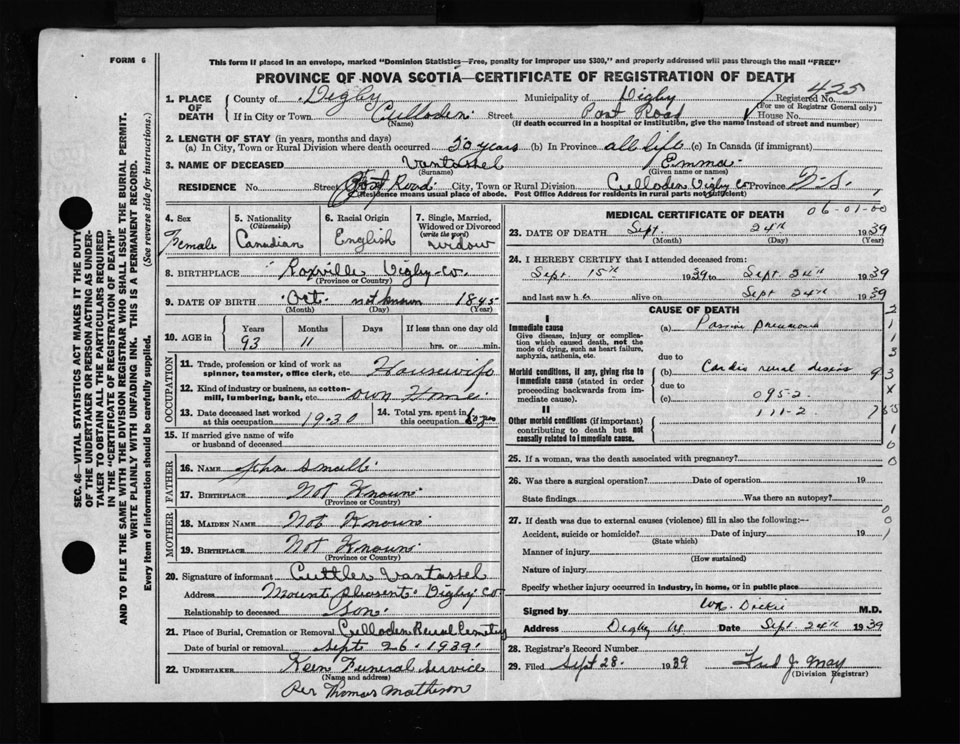 FORM 6
This form if placed in an envelope, marked "Dominion Statistics—Free, penalty for improper use $300," and properly addressed will pass through the mail "FREE"
PROVINCE OF NOVA SCOTIA—CERTIFICATE OF REGISTRATION OF DEATH
425
1. PLACE OF DEATH
County of Digby Municipality of Digby Registered No.
(For use of Registrar General only)
If in City or Town Culloden Street Post Road House No.
(Name) (If death occurred in a hospital or institution, give the name instead of street and number)
2. LENGTH OF STAY (in years, months and days)
(a) In City, Town or Rural Division where death occurred 50 years (b) In Province all life (c) In Canada (if immigrant)
3. NAME OF DECEASED Vantassel Emma
(Surname) (Given name or names)
RESIDENCE No. Street Post Road City, Town or Rural Division Culloden Digby Co Province N.S.
(Residence means usual place of abode. Post Office Address for residents in rural parts not sufficient)
4. Sex
Female
5. Nationality
(Citizenship)
Canadian
6. Racial Origin
English
7. Single, Married, Widowed or Divorced
(write the word)
widow
8. BIRTHPLACE Roxville Digby Co.
(Province or Country)
9. DATE OF BIRTH Oct. not known 1845
(Month) (Day) (Year)
10. AGE in
Years Months Days If less than one day old
93 11 hrs. or min.
OCCUPATION
11. Trade, profession or kind of work as spinner, teamster, office clerk, etc. Housewife
12. Kind of industry or business, as cotton-mill, lumbering, bank, etc. own Home
13. Date deceased last worked at this occupation 1930
14. Total yrs. spent in this occupation 60 yrs
15. If married give name of wife or husband of deceased
FATHER
16. NAME John Small
17. BIRTHPLACE Not Known
(Province or Country)
MOTHER
18. MAIDEN NAME Not Known
19. BIRTHPLACE Not Known
(Province or Country)
20. Signature of informant Cuttler Vantassel
Address Mount Pleasent Digby Co
Relationship to deceased Son
21. Place of Burial, Cremation or Removal Culloden Rural Cemetry
Date of burial or removal Sept. 26 - 1939
22. UNDERTAKER Keen Funeral Service
(Name and address)
Per Thomas Matheson
MEDICAL CERTIFICATE OF DEATH
06-01-00
23. DATE OF DEATH Sept. 24th 1939
(Month) (Day) (Year)
24. I HEREBY CERTIFY that I attended deceased from:
Sept. 15th 1939 to Sept. 24th 1939
and last saw her alive on Sept 24th 1939
CAUSE OF DEATH
I
Immediate cause
Give disease, injury or complication which caused death, not the mode of dying, such as heart failure, asphyxia, asthenia, etc.
(a) Passive pneumonia
due to
Morbid conditions, if any, giving rise to immediate cause (stated in order proceeding backwards from immediate cause).
(b) Cardio renal disease
due to
(c) 095-2
111-2
II
Other morbid conditions (if important) contributing to death but not causally related to immediate cause.
25. If a woman, was the death associated with pregnancy?
26. Was there a surgical operation? Date of operation 19
State findings Was there an autopsy?
27. If death was due to external causes (violence) fill in also the following:—
Accident, suicide or homicide? Date of injury 19
(State which)
Manner of injury
(How sustained)
Nature of injury
Specify whether injury occurred in industry, in home, or in public place
Signed by Wm. Dickie M.D.
Address Digby Date Sept. 24th 1939
28. Registrar's Record Number
29. Filed Sept 28 - 1939 Fred J. May
(Division Registrar)
SEC. 46—VITAL STATISTICS ACT MAKES IT THE DUTY
OF THE UNDERTAKER OR PERSON ACTING AS UNDER-
TAKER TO OBTAIN ALL THE PARTICULARS REQUIRED
IN THE "CERTIFICATE OF REGISTRATION OF DEATH"
AND TO FILE THE SAME WITH THE DIVISION REGISTRAR WHO SHALL ISSUE THE BURIAL PERMIT.
WRITE PLAINLY WITH UNFADING INK. THIS IS A PERMANENT RECORD.
Every item of information should be carefully supplied. (See reverse side for instructions.)